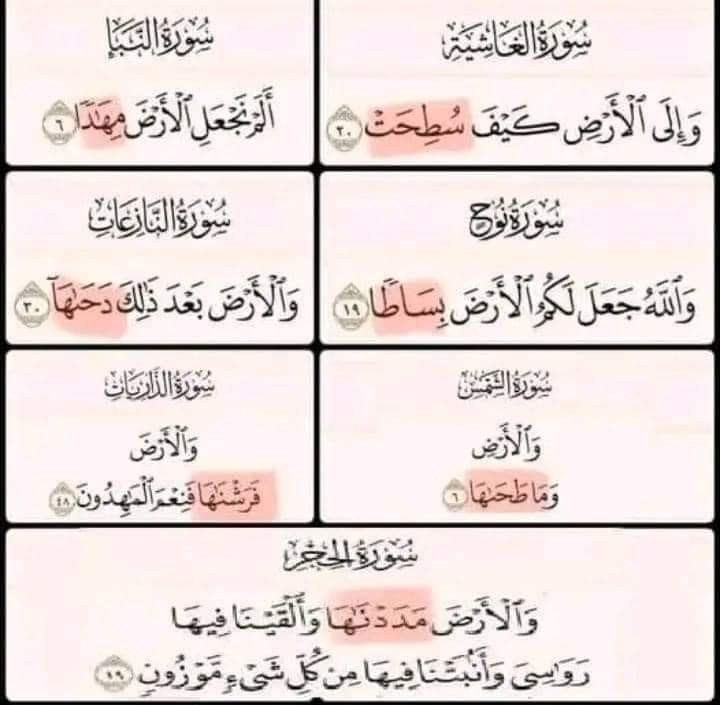 سُورَةُ الغَاشِيَةِ
وَإِلَى ٱلْأَرْضِ كَيْفَ سُطِحَتْ ٢٠
سُورَةُ النَّبَإِ
أَلَمْ نَجْعَلِ ٱلْأَرْضَ مِهَٰدًا ٦
سُورَةُ نُوحٍ
وَٱللَّهُ جَعَلَ لَكُمُ ٱلْأَرْضَ بِسَاطًا ١٩
سُورَةُ النَّازِعَاتِ
وَٱلْأَرْضَ بَعْدَ ذَٰلِكَ دَحَىٰهَآ ٣٠
سُورَةُ الشَّمْسِ
وَٱلْأَرْضِ
وَمَا طَحَىٰهَا ٦
سُورَةُ الذَّارِيَاتِ
وَٱلْأَرْضَ
فَرَشْنَٰهَا فَنِعْمَ ٱلْمَٰهِدُونَ ٤٨
سُورَةُ الحِجْرِ
وَٱلْأَرْضَ مَدَدْنَٰهَا وَأَلْقَيْنَا فِيهَا
رَوَٰسِىَ وَأَنۢبَتْنَا فِيهَا مِن كُلِّ شَىْءٍ مَّوْزُونٍ ١٩